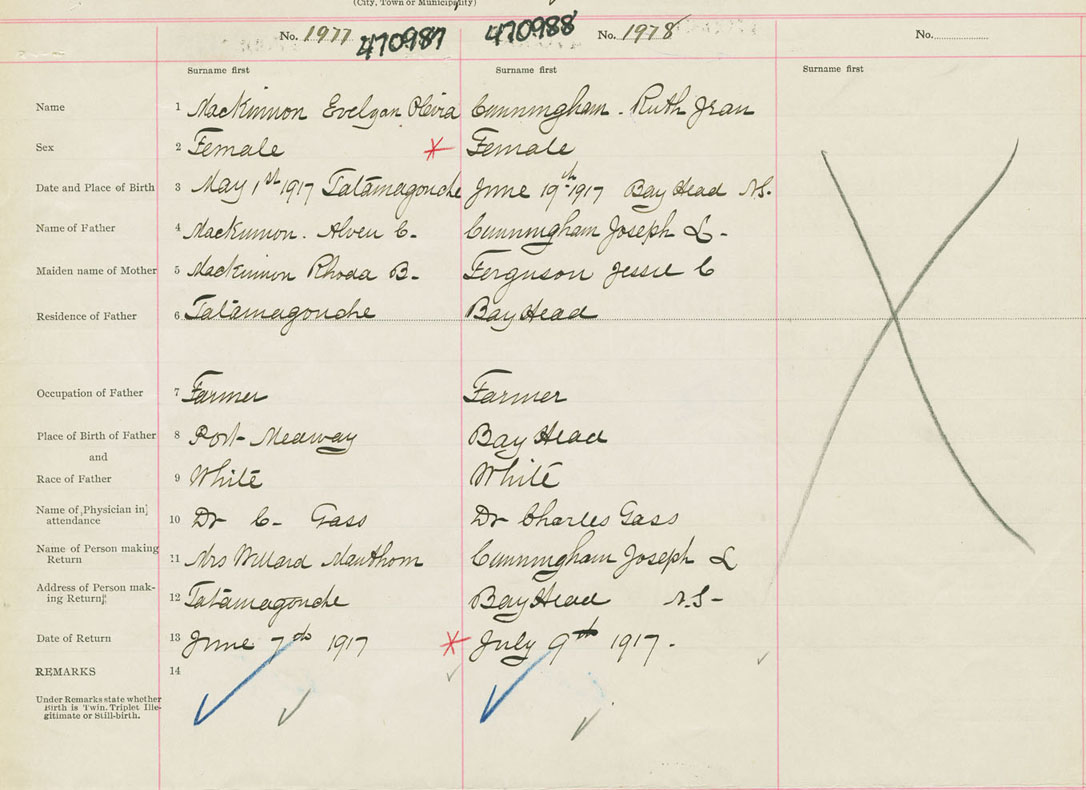 (City, Town or Municipality)
No. 1977 470987 470988 No. 1978 No.
Surname first Surname first Surname first
Name 1 MacKinnon Evelyn Olivia Cunningham. Ruth Jean
Sex 2 Female Female
Date and Place of Birth 3 May 1st 1917 Tatamagouche June 19th 1917 Bay Head N.S.
Name of Father 4 MacKinnon. Alven C. Cunningham Joseph L.
Maiden name of Mother 5 MacKinnon Rhoda B. Ferguson Jessie C
Residence of Father 6 Tatamagouche Bay Head
Occupation of Father 7 Farmer Farmer
Place of Birth of Father 8 Port Medway Bay Head
and
Race of Father 9 White White
Name of Physician in
attendance 10 Dr C. Gass Dr Charles Gass
Name of Person making
Return 11 Mrs Willard Cunningham Joseph L
Address of Person mak-
ing Return 12 Tatamagouche Bay Head N.S.
Date of Return 13 June 7th 1917 July 9th 1917.
REMARKS 14
Under Remarks state whether
Birth is Twin, Triplet Ille-
gitimate or Still-birth.